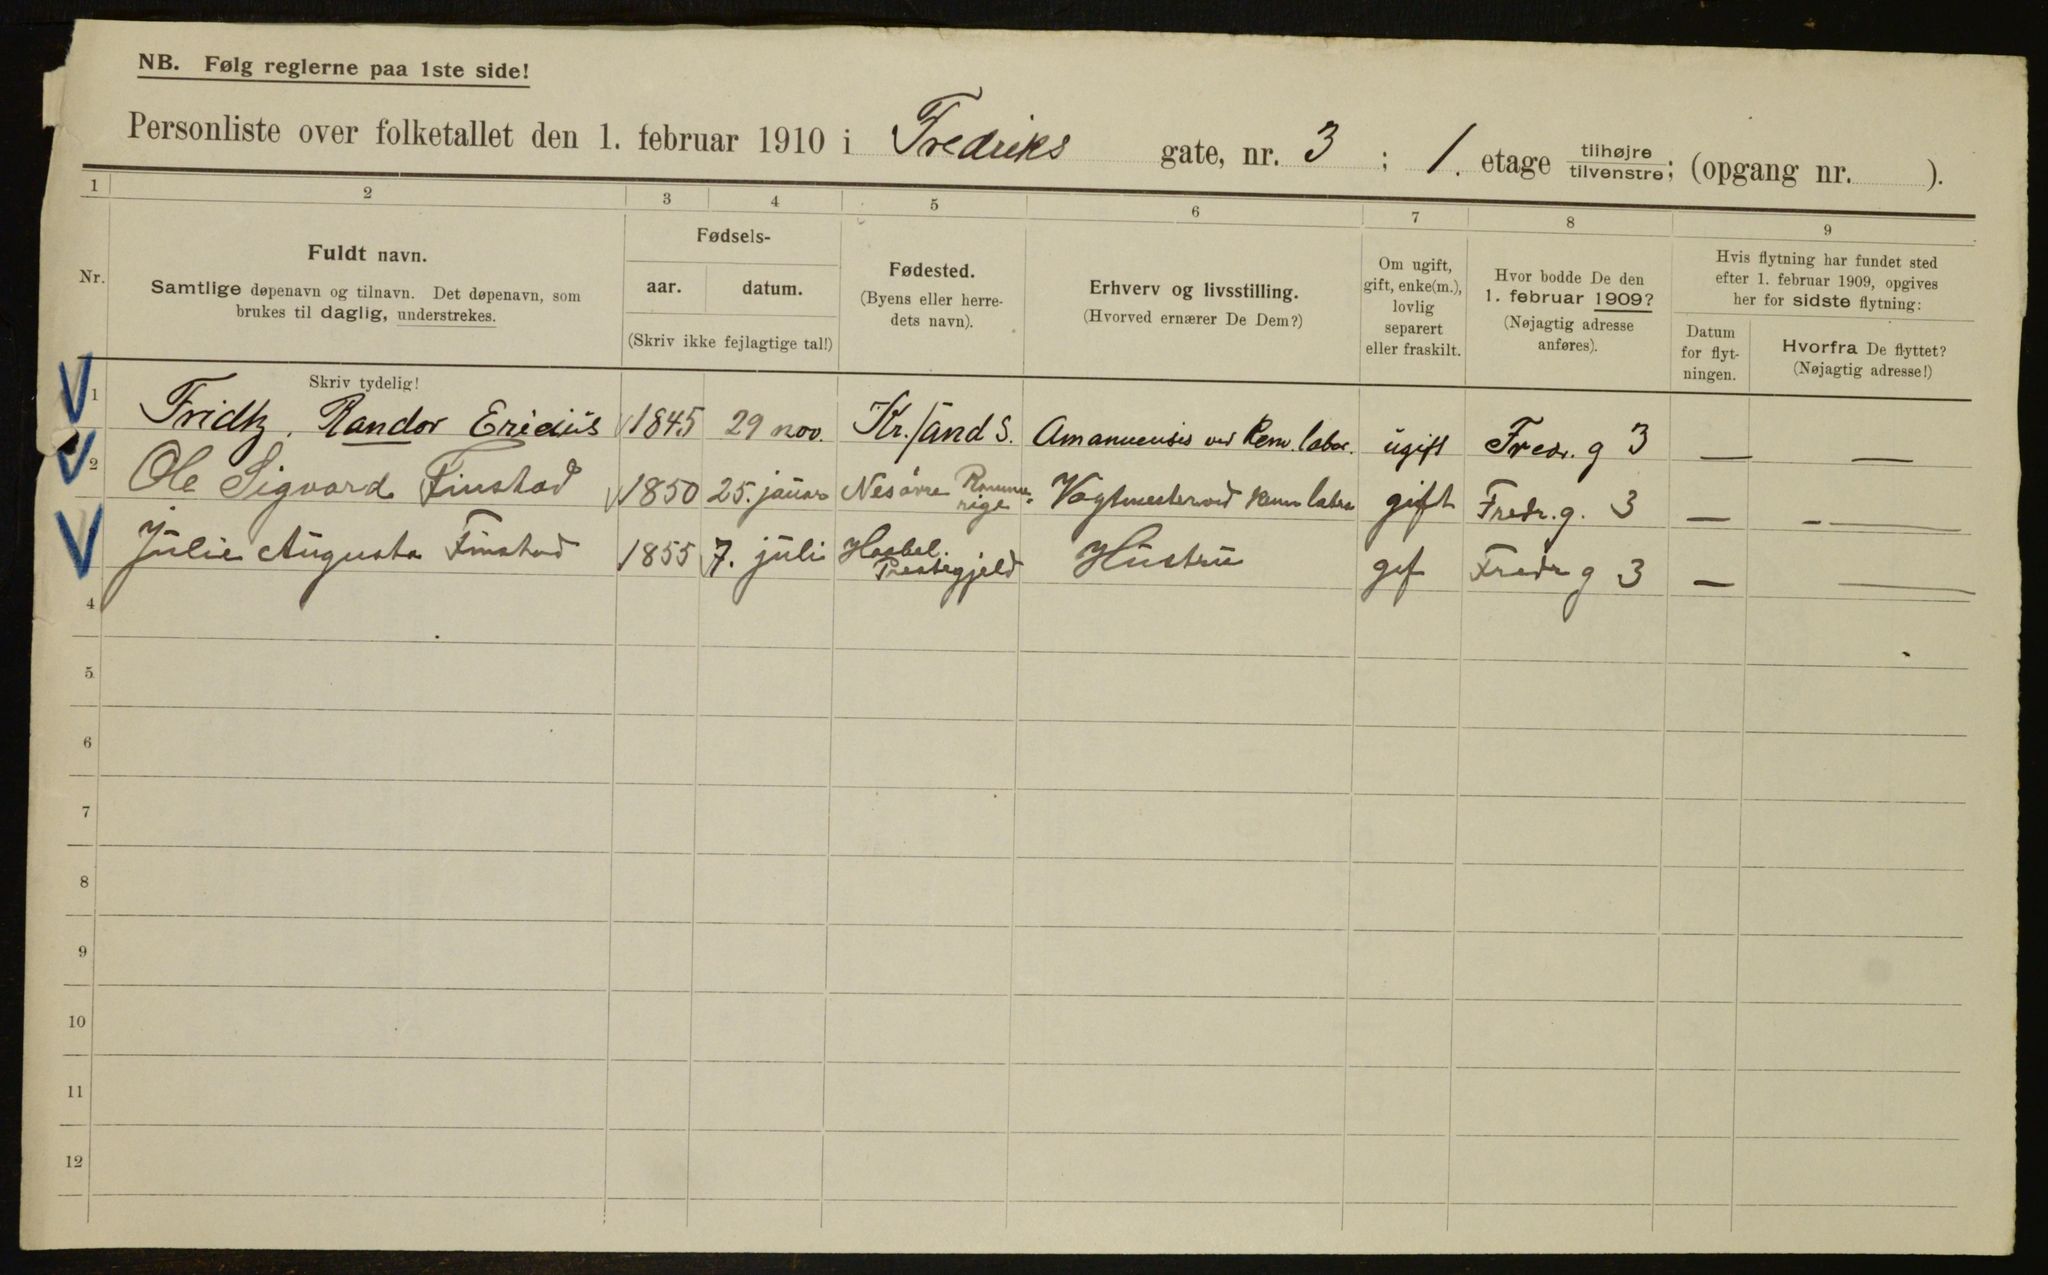 NB. Følg reglerne paa 1ste side!
Personliste over folketallet den 1. februar 1910 i Fredriks gate, nr. 3 ; 1. etage tilhøjre tilvenstre; (opgang nr. ).
1 2 3 4 5 6 7 8 9
Nr.
Fuldt navn.
Samtlige døpenavn og tilnavn. Det døpenavn, som
brukes til daglig, understrekes.
Skriv tydelig!
Fødsels-
aar. datum.
(Skriv ikke fejlagtige tal!)
Fødested.
(Byens eller herre-
dets navn).
Erhverv og livsstilling.
(Hvorved ernærer De Dem?)
Om ugift,
gift, enke(m.),
lovlig
separert
eller fraskilt.
Hvor bodde De den
1. februar 1909?
(Nøjagtig adresse
anføres).
Hvis flytning har fundet sted
efter 1. februar 1909, opgives
her for sidste flytning:
Datum
for flyt-
ningen.
Hvorfra De flyttet?
(Nøjagtig adresse!)
1 Fridtz, Randor Ericius 1845 29 nov. Kr./sand S. Amanuensis ved Kem. labor. ugift Fredr. g 3 — —
2 Ole Sigvard Finstad 1850 25. januar Nes øvre Romme-
rige Vagtmester ved Kem labra gift Fredr. g. 3 — —
Julie Augusta Finstad 1855 7. juli Haabel
Prestegjeld Hustru gif Fredr g 3 — —
4
5
6
7
8
9
10
11
12